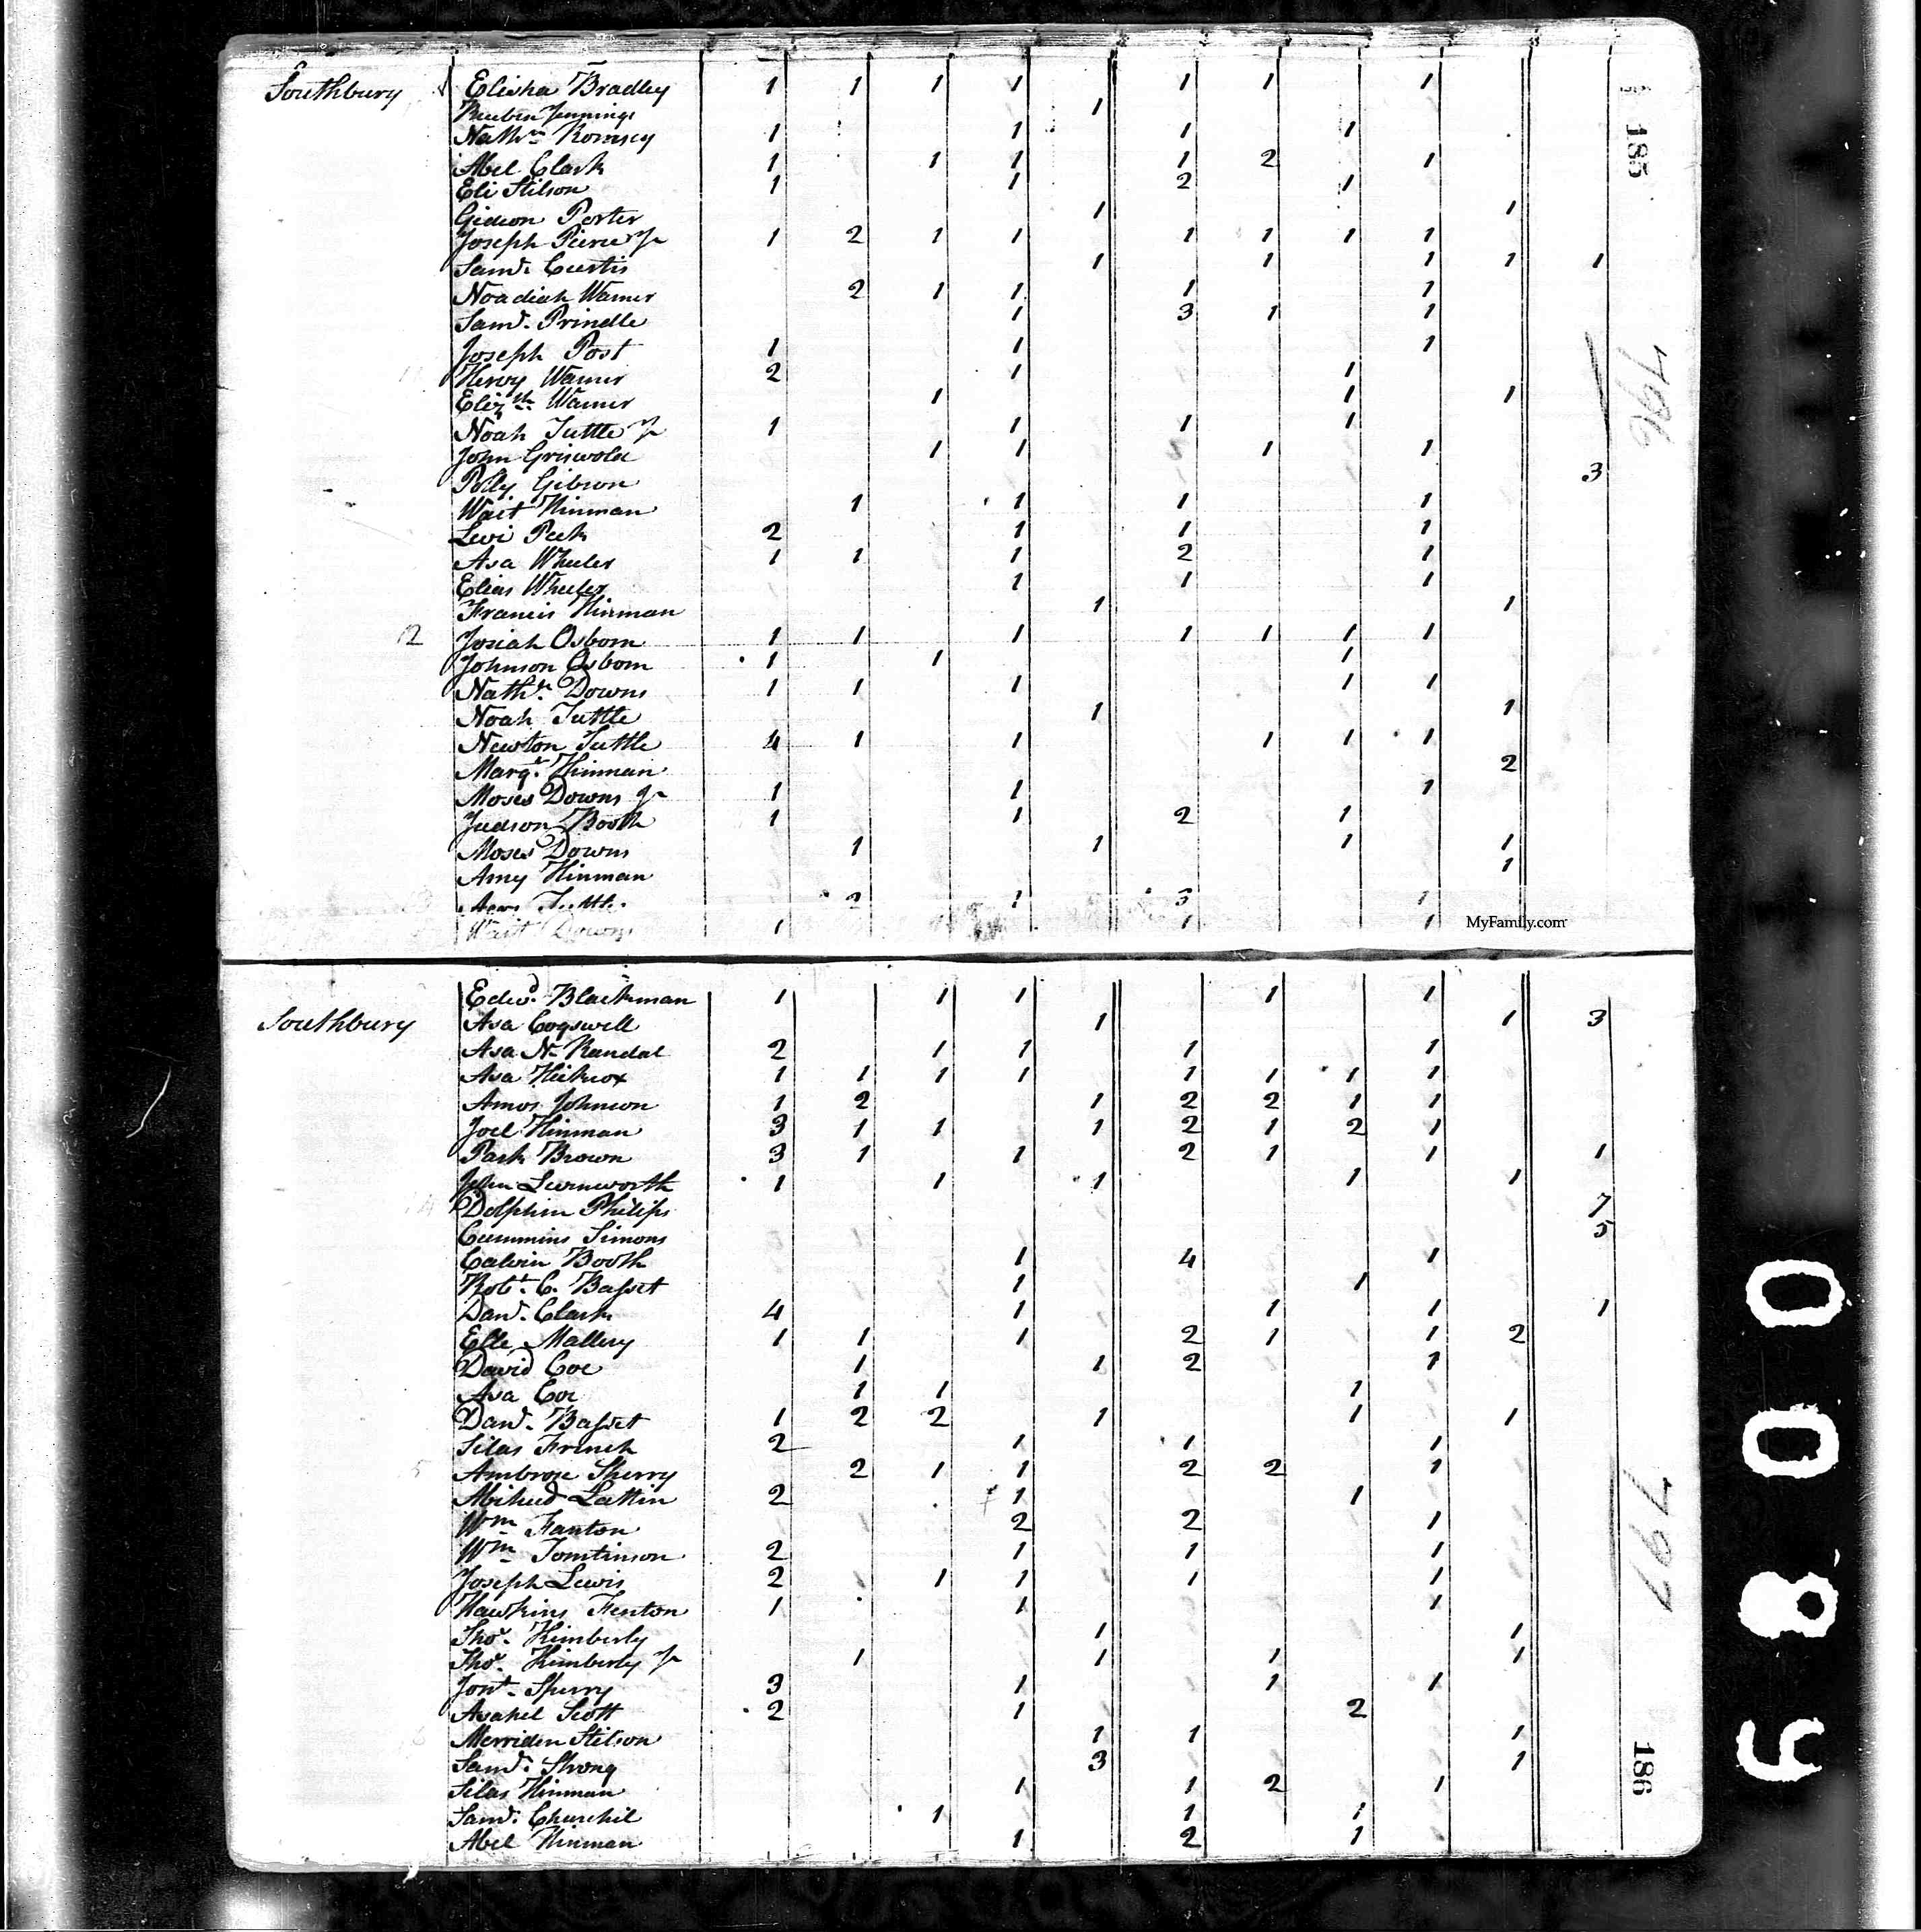 Southbury Elisha Bradley 1 1 1 1 1 1 1
Reuben Jennings 1
Nathn Romsey 1 1 1 1
Abel Clark 1 1 1 1 2 1
Eli Stilson 1 1 2 1
Gideon Porter 1 1
Joseph Pierce Jr 1 2 1 1 1 1 1 1
Saml. Curtis 1 1 1 1 1
Noadiah Warner 2 1 1 1 1
Saml. Prindle 1 3 1 1
Joseph Post 1 1 1
Hervy Warner 2 1 1
Elizth Warner 1 1 1
Noah Tuttle Jr 1 1 1 1
John Griswold 1 1 1 1
Polly Gibson 3
Wait Hinman 1 1 1 1
Levi Peck 2 1 1 1
Asa Wheeler 1 1 1 2 1
Elias Wheeler 1 1 1
Francis Hinman 1 1
2 Josiah Osborn 1 1 1 1 1 1 1
Johnson Osborn 1 1 1
Nathn. Downs 1 1 1 1 1
Noah Tuttle 1 1
Newton Tuttle 4 1 1 1 1 1
Margt. Hinman 2
Moses Downs Jr 1 1 1
Judson Booth 1 1 2 1
Moses Downs 1 1 1 1
Amy Hinman 1
Tuttle 2 1 3 1
Wait Downs 1 1 1
MyFamily.com
185
796
Edwd. Blackman 1 1 1 1 1
Southbury Asa Cogswell 1 1 3
Asa N. Randal 2 1 1 1 1
Asa Hickcox 1 1 1 1 1 1 1 1
Amos Johnson 1 2 1 2 2 1 1
Joel Hinman 3 1 1 1 2 1 2 1
Park Brown 3 1 1 2 1 1 1
John Levenworth 1 1 1 1 1
Dolphin Philips 7
Cummins Simons 5
Calvin Booth 1 4 1
Robt. C. Basset 1 1
Danl. Clark 4 1 1 1 1
Elle Mallery 1 1 1 2 1 1 2
David Coe 1 1 2 1
Asa Coe 1 1 1
Danl. Basset 1 2 2 1 1 1
Silas French 2 1 1 1
Ambrose Sherry 2 1 1 2 2 1
Abihud Lattin 2 1 1
Wm Fanton 2 2 1
Wm Tomlinson 2 1 1 1
Joseph Lewis 2 1 1 1 1
Hawkins Fenton 1 1 1
Thos. Kimberly 1 1
Thos. Kimberly Jr 1 1 1 1
Jont. Sperry 3 1 1 1
Asahel Scott 2 1 2
Merriden Stilson 1 1 1
Saml. Strong 3 1
Silas Hinman 1 1 2 1
Saml. Churchil 1 1 1
Abel Hinman 1 2 1
797
186
0 0 8 5